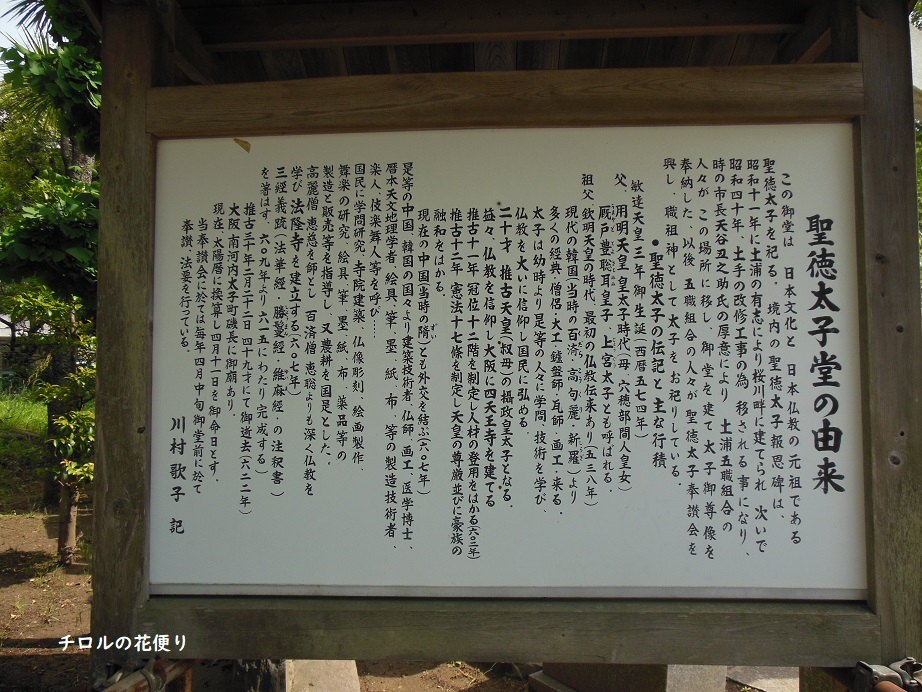 聖徳太子堂の由来
この御堂は、日本文化と、日本仏教の元祖である
聖徳太子を祀る。境内の聖徳太子報恩碑は、
昭和十一年に土浦の有志により桜川畔に建てられ、次いで
昭和四十一年、土手の改修工事の為、移される事になり、
時の市長天谷丑之助氏の厚意により、土浦五職組合の
人々が、この場所に移し、御堂を建て太子御尊像を
奉納した、以後、五職組合が聖徳太子奉讃会を
興し、職祖神として太子をお祀りしている。
●聖徳太子の伝記と主な行積
敏達天皇三年御生誕(西暦五七四年)
父、用明天皇、皇太子時代(母、穴穂部間人皇女)
厩戸豊聡耳皇子、上宮太子とも呼ばれる。
祖父、欽明天皇の時代、最初の仏教伝来あり(五三八年)
現代の韓国(当時の百済、高句麗、新羅)より
多くの経典、僧侶、大工、鑪盤師、瓦師、画工、来る。
太子は幼時より是等の人々に学問、技術を学び、
仏教を大いに信仰し国民に弘める。
二十才、推古天皇(叔母)の摂政皇太子となる。
益々、仏教を信仰し大阪に四天王寺を建てる
推古十一年、冠位十二階を制定し人材の登用をはかる(六〇三年)
推古十二年、憲法十七條を制定し天皇の尊厳並びに豪族の
融和をはかる。
現在の中国(当時の隋)とも外交を結ぶ(六〇七年)
ずい
是等の中国、韓国の国々より建築技術者、仏師、画工、医学博士、
暦本天文地理学者、絵具、筆、墨、紙、布、等の製造技術者、
楽人、伎楽舞人等を呼び……
国民に学問研究、寺院建築、仏像彫刻、絵画製作、
舞楽の研究、絵具、筆、墨、紙、布、薬品等の
製造と販売等を指導し、又、農耕を国是とした。
高麗僧、恵慈を師とし、百済僧、恵聡よりも深く仏教を
学び、法隆寺を建立する(六〇七年)
三経義疏(法華経・勝鬘経・維麻経)の注釈書)
を著はす、六〇九年より六一五にわたり完成する)
推古三十年二月二十二日、四十九才にて御逝去(六二二年)
大阪、南河内太子町磯長に御廟あり、
現在、太陽暦に換算し四月十一日を御命日とす、
当奉讃会に於ては毎年四月中旬御堂前に於て
奉讃、法要を行っている。
川村歌子 記
チロルの花便り